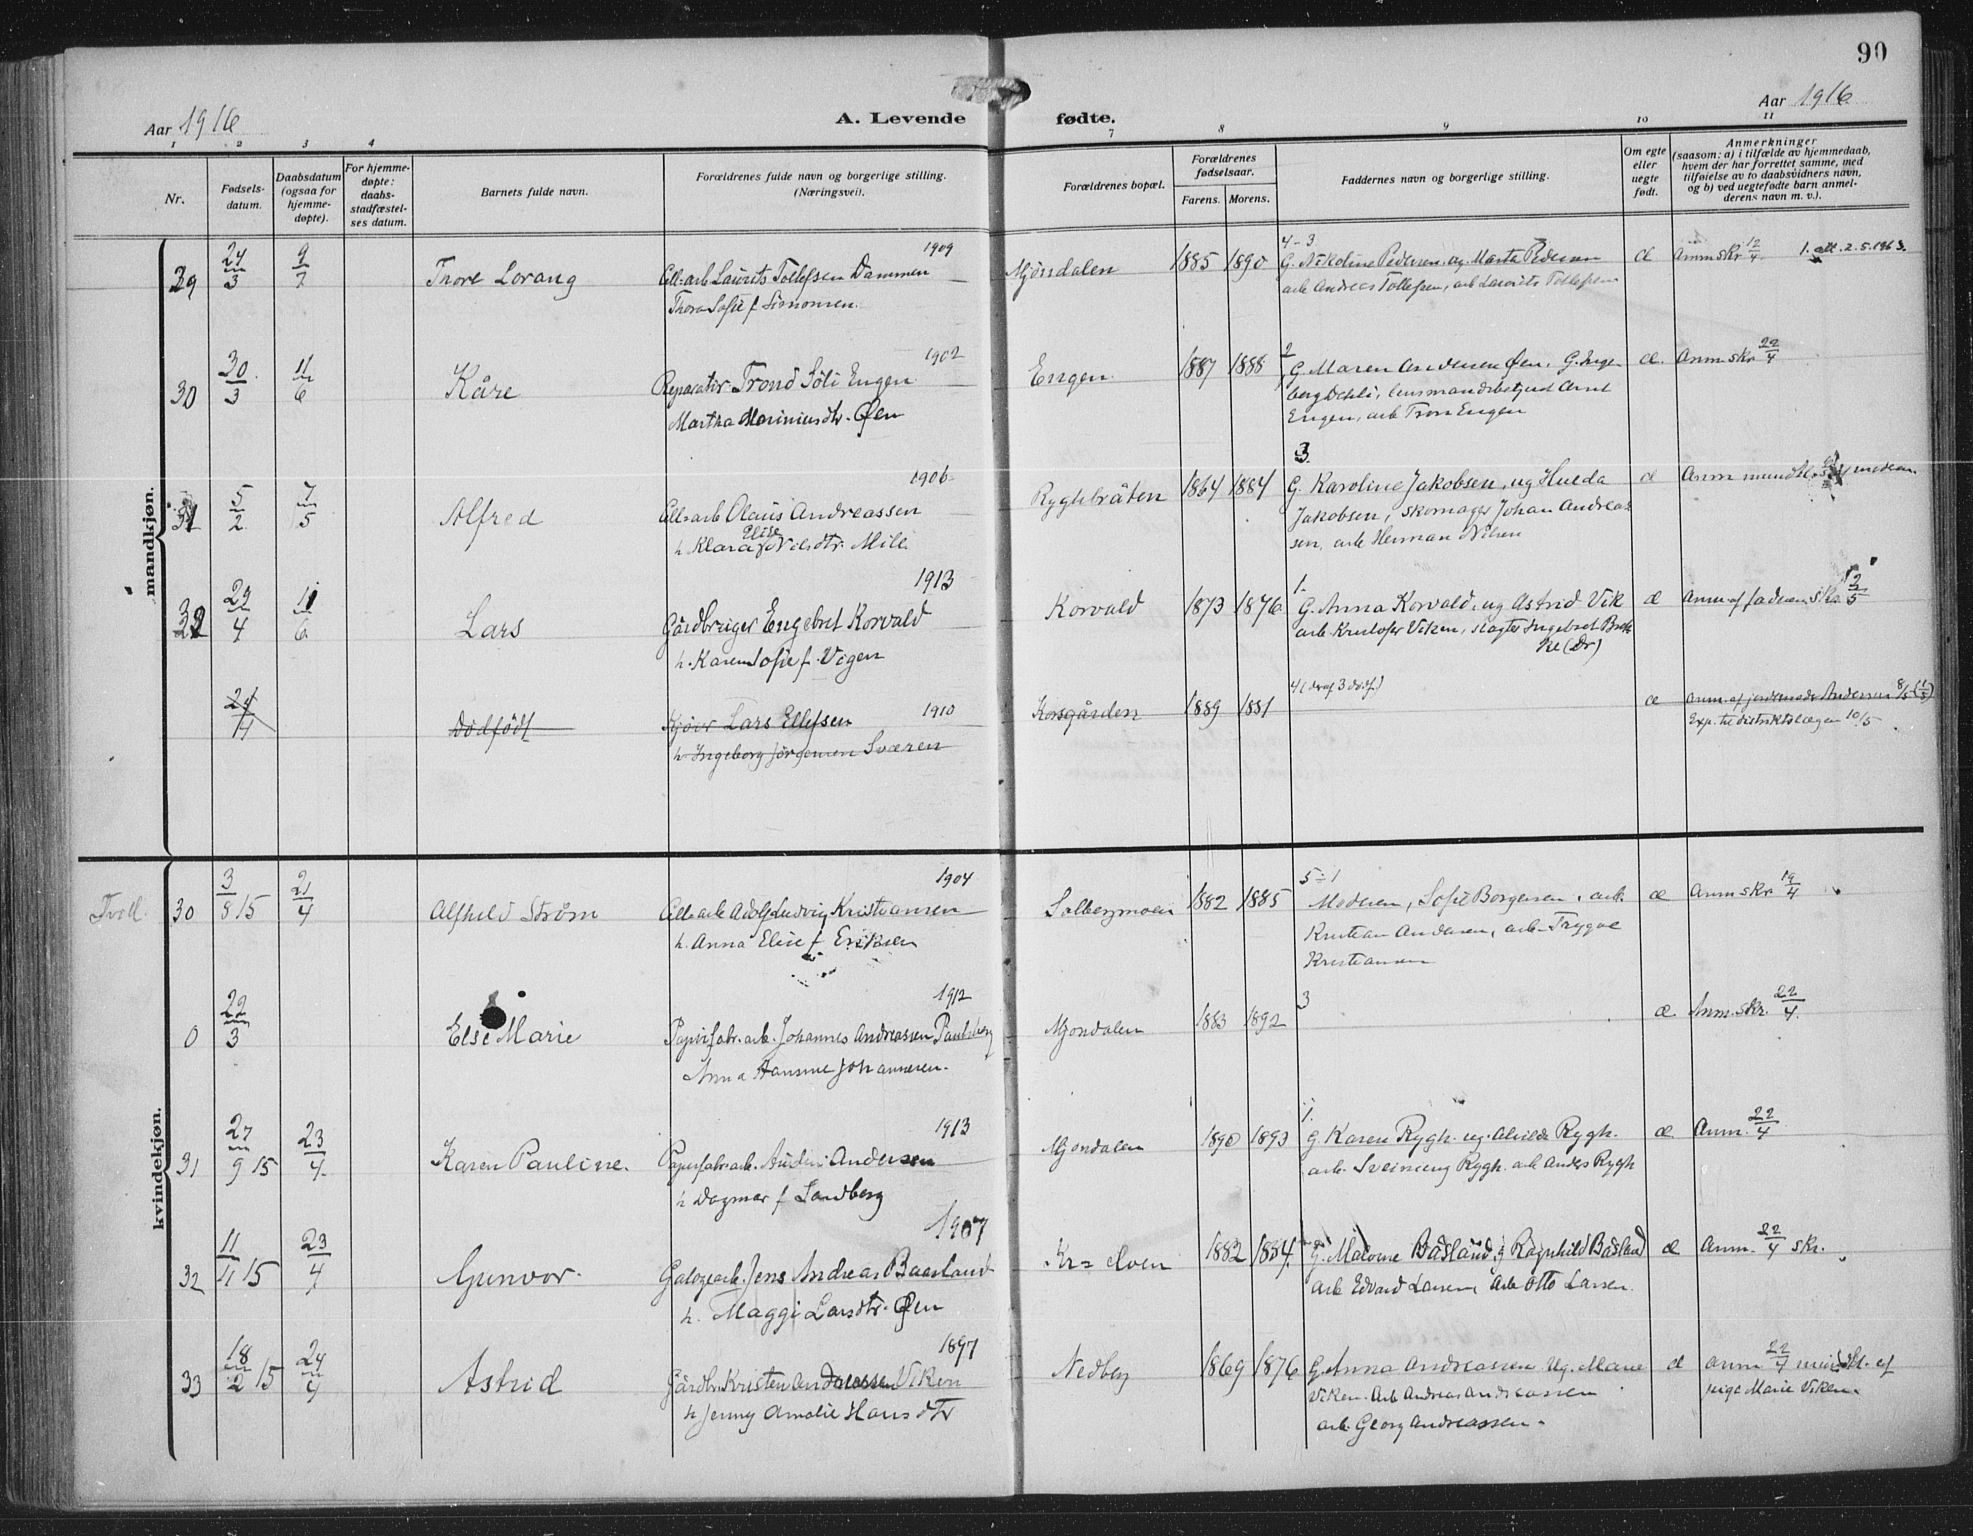 90
Aar 1916
A. Levende fødte.
Aar 1916
1 2 3 4 7 8 9 10 11
Nr.
Fødsels-
datum.
Daabsdatum
(ogsaa for
hjemme-
døpte).
For hjemme-
døpte:
daabs-
stadfæstel-
ses datum.
Barnets fulde navn.
Forældrenes fulde navn og borgerlige stilling.
(Næringsvei).
Forældrenes bopæl.
Forældrenes
fødselsaar.
Farens. Morens.
Faddernes navn og borgerlige stilling.
Om egte
eller
uegte
født.
Anmerkninger
(saasom: a) i tilfælde av hjemmedaab,
hvem der har forrettet samme, med
tilføielse av to daabsvidners navn,
og b) ved uegtefødte barn anmel-
derens navn m. v.).
mandkjøn.
29 24/3 9/7 Thore Lorang
1909
Cell.arb Laurits Tollefsen Dammen
Thora Sofie f. Simonsen
Mjöndalen 1885 1890
4-3
G. Nikoline Pedersen, ug. Marta Pedersen
arb Andreas Tollefsen, arb Laurits Tollefsen
æ Anm skr 12/4 1. att. 2.5.1963.
30 30/3 11/6 Kåre
1902
Reparatør Trond Söli Engen
Martha Mariniusdtr. Øen
Engen 1887 1888
2
G. Maren Andersen Øen, G. Inge
berg Dehli, lensmandsbetjent Arnt
Engen, arb Tron Engen
æ. Anm skr 22/4
31 5/2 7/5 Alfred
1906
Cell.arb Olaus Andreassen
Elise
h. Klara f. Nilsdtr. Mili
Ryghbråten 1864 1884
3.
G. Karoline Jakobsen, ug Hulda
Jakobsen, skomager Johan Andreas
sen, arb Herman Nilsen
æ Anm mundtl.
32 29/4 11/6 Lars
1913
Gårdbruger Engebret Korvald
h. Karen Sofie f. Vigen
Korvald 1873 1876
1.
G. Anna Korvald, ug Astrid Vik
arb. Kristofer Viken, slagter Ingebret Brek
ke (Dr)
æ Anm. af faderen skr. 3/5
24/4 Dødfødt
1910
Kjører Lars Ellefsen
h. Ingeborg Jørgensen Sværen
Korsgården 1889 1881
4 (deraf 3 dødf.)
æ Anm. af jordemode Andersen 8/5 (11/5)
Exp. til distriktslægen 10/5.
kvindekjøn.
Tvill. 30 3/8 15 21/4 Alfhild Strøm
1904
Cell.arb Adolf Ludvig Kristiansen
h. Anna Elise f Eriksen
Solbergmoen 1882 1885
5-1
Moderen, Sofie Borgersen, arb
Kristian Andersen, arb. Trygve
Kristiansen
æ Anm skr 19/4
0 22/3 Else Marie
1912
Papirfabr.arb. Johannes Andreassen Paulsberg
Anna Hansine Johannesen.
Mjondalen 1883 1892
3
æ Anm. skr. 22/4.
31 27/9 15 23/4 Karen Pauline.
1913
Papirfabr.arb. Andersen
h Dagmar f Sandberg
Mjondalen 1890 1893
1.
G Karen Rygh. ug. Alvilde Rygh.
arb. Sveinung Rygh. arb Anders Rygh
æ Anm. 22/4
32 11/11 15 23/4 Gunvor.
1907
Galogearb. Jens Andreas Baasland
h. Maggi Larsdtr. Øen
Kr= elven 1882 1884.
G. Malvine Båsland, g Ragnhild Båsland
arb Edvard Larsen, Arb Otto Larsen.
æ Anm. 22/4 skr.
33 18/2 15 24/4 Astrid
1897
Gårdbr. Kristen Andreassen Viken
h Jenny Amalie Hansdtr
Nedberg 1869 1876
G. Anna Andreassen Ug. Marie
Viken. Arb Andreas Andreassen
arb. Georg Andreassen.
æ Anm 22/4 mundtl. af
pige Marie Viken.